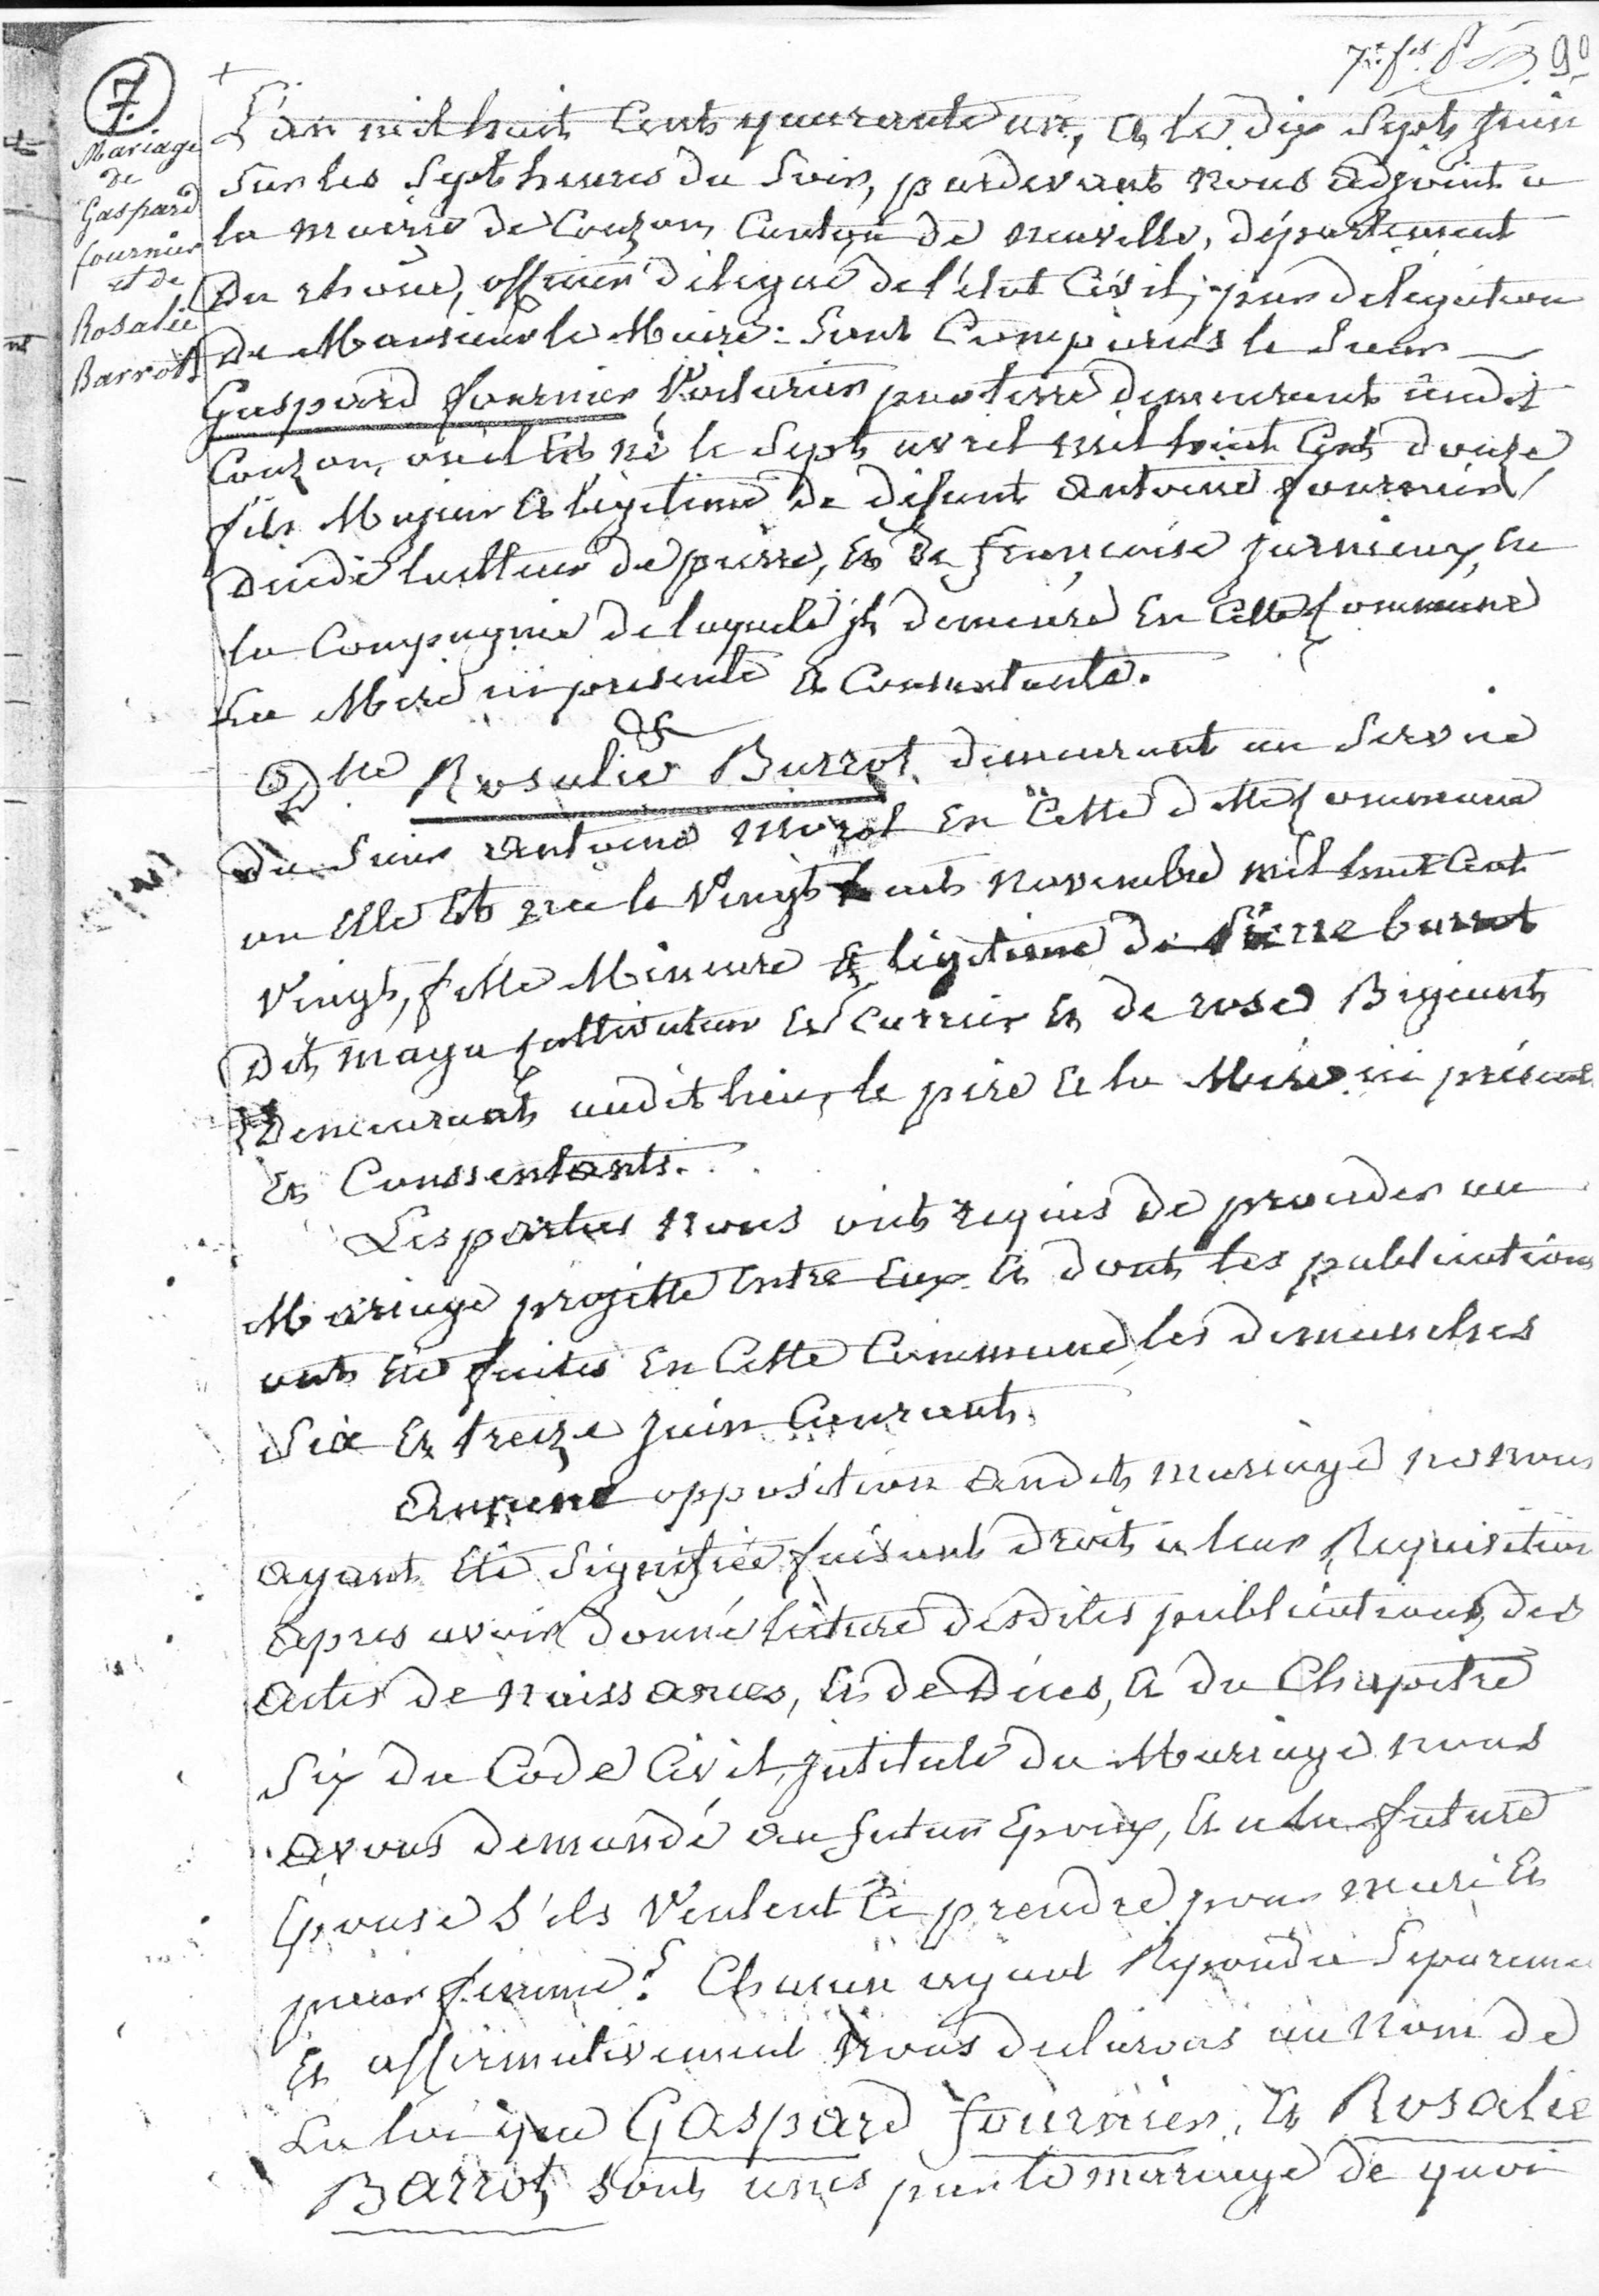 7
Mariage
de
Gaspard
fournier
et de
Rosalie
Barrot
L'an mil huit Cents quarante un, et le dix Septs juin
Sur les Septs heures du Soir, pardevant nous adjoint a
la mairie de Couzon Canton de neuville, département
Du rhône, officier délégué de l'état Civil, par délégation
De Monsieur le Maire : Sont Comparus le Sieur
Gaspard fournier Voiturier par terre demeurant audit
Couzon, ou il Est né le Septs avril mil huit Cent douze
fils Majeur Et légitime de défunt Antoine fournier
tailleur de pierre, Et de françoise jurnieux, En
la Compagnie de laquelle il demeure En Cette Commune
La Mere ici presente Et Consentante.
Et
Dlle Rosalie Barrot demeurant au Service
du Sieur Antoine En Cette ditte Commune
ou Elle Est née le Vingt huit novembre mil huit Cent
Vingt, fille Mineure Et légitime de Pierre barrot
Dit Cultivateur Et Carrier Et de rose
Demeurants audit lieu, le père Et la Mère ici présents
Et Conssentants.
Les parties nous ont requis de proceder au
Mariage projetté Entre Eux Et dont les publications
ont Eté faites En Cette Commune les dimanches
Six Et treize juin Courant.
Aucune opposition audit mariage ne nous
ayant Eté Signifiée faisant droit a leur Requisition
apres avoir donné lecture desdites publications, des
actes de naissances, Et de Déces, Et du Chapitre
Six du Code Civil, jntitulé du Mariage nous
avons demandé au futur Epoux, Et a la future
Epouse S'ils Veulent Ce prendre pour mari Et
pour femme? Chacun ayant Repondu Separeme
Et affirmativement Nous declarons au nom de
La loi que Gaspard fournier, Et Rosalie
Barrot, Sont unis par le mariage de quoi